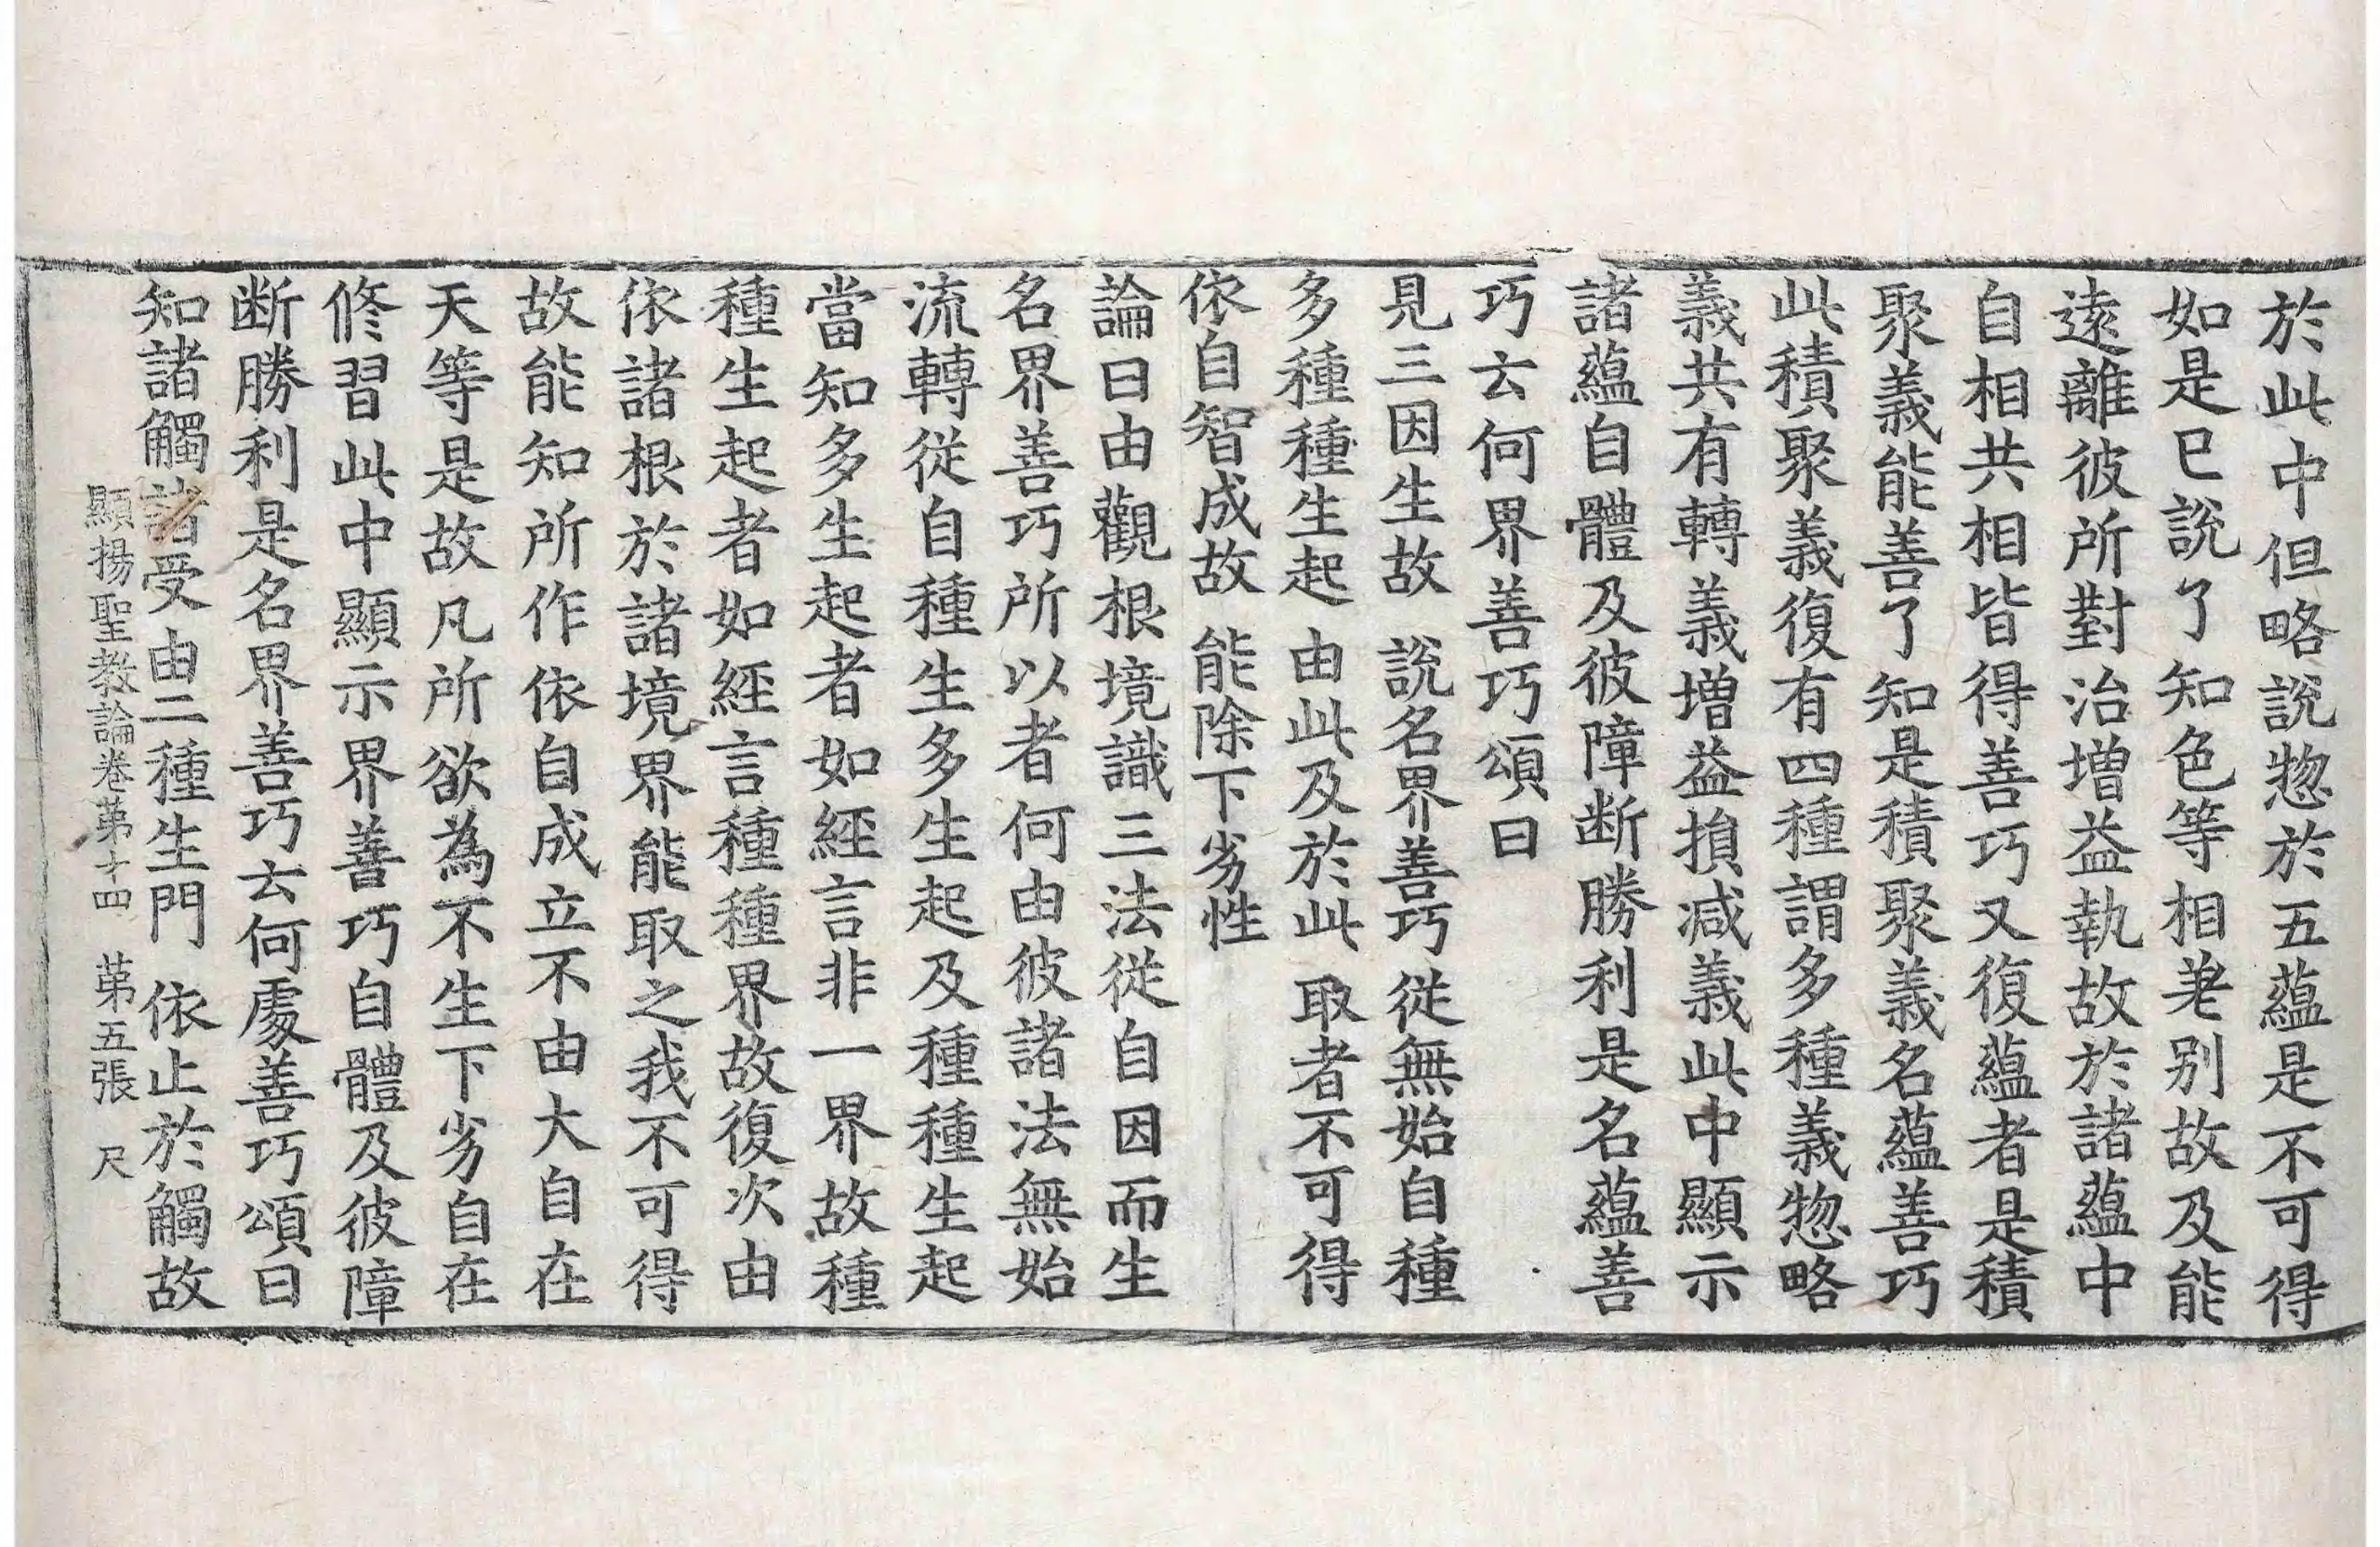 於此中但略說惣於五蘊是不可得
如是已說了知色等相差別故及能
遠離彼所對治增益執故於諸蘊中
自相共相皆得善巧又復蘊者是積
聚義能善了知是積聚義名蘊善巧
此積聚義復有四種謂多種義惣略
義共有轉義增益損減義此中顯示
諸蘊自體及彼障断勝利是名蘊善
巧云何界善巧頌曰
見三因生故 說名界善巧 從無始自種
多種種生起 由此及於此 取者不可得
依自智成故 能除下劣性
論曰由觀根境識三法從自因而生
名界善巧所以者何由彼諸法無始
流轉從自種生多生起及種種生起
當知多生起者如經言非一界故種
種生起者如經言種種界故復次由
依諸根於諸境界能取之我不可得
故能知所作依自成立不由大自在
天等是故凡所欲為不生下劣自在
修習此中顯示界善巧自體及彼障
断勝利是名界善巧云何處善巧頌曰
知諸觸諸受由二種生門 依止於觸故
顯揚聖教論卷第十四 第五張 尺